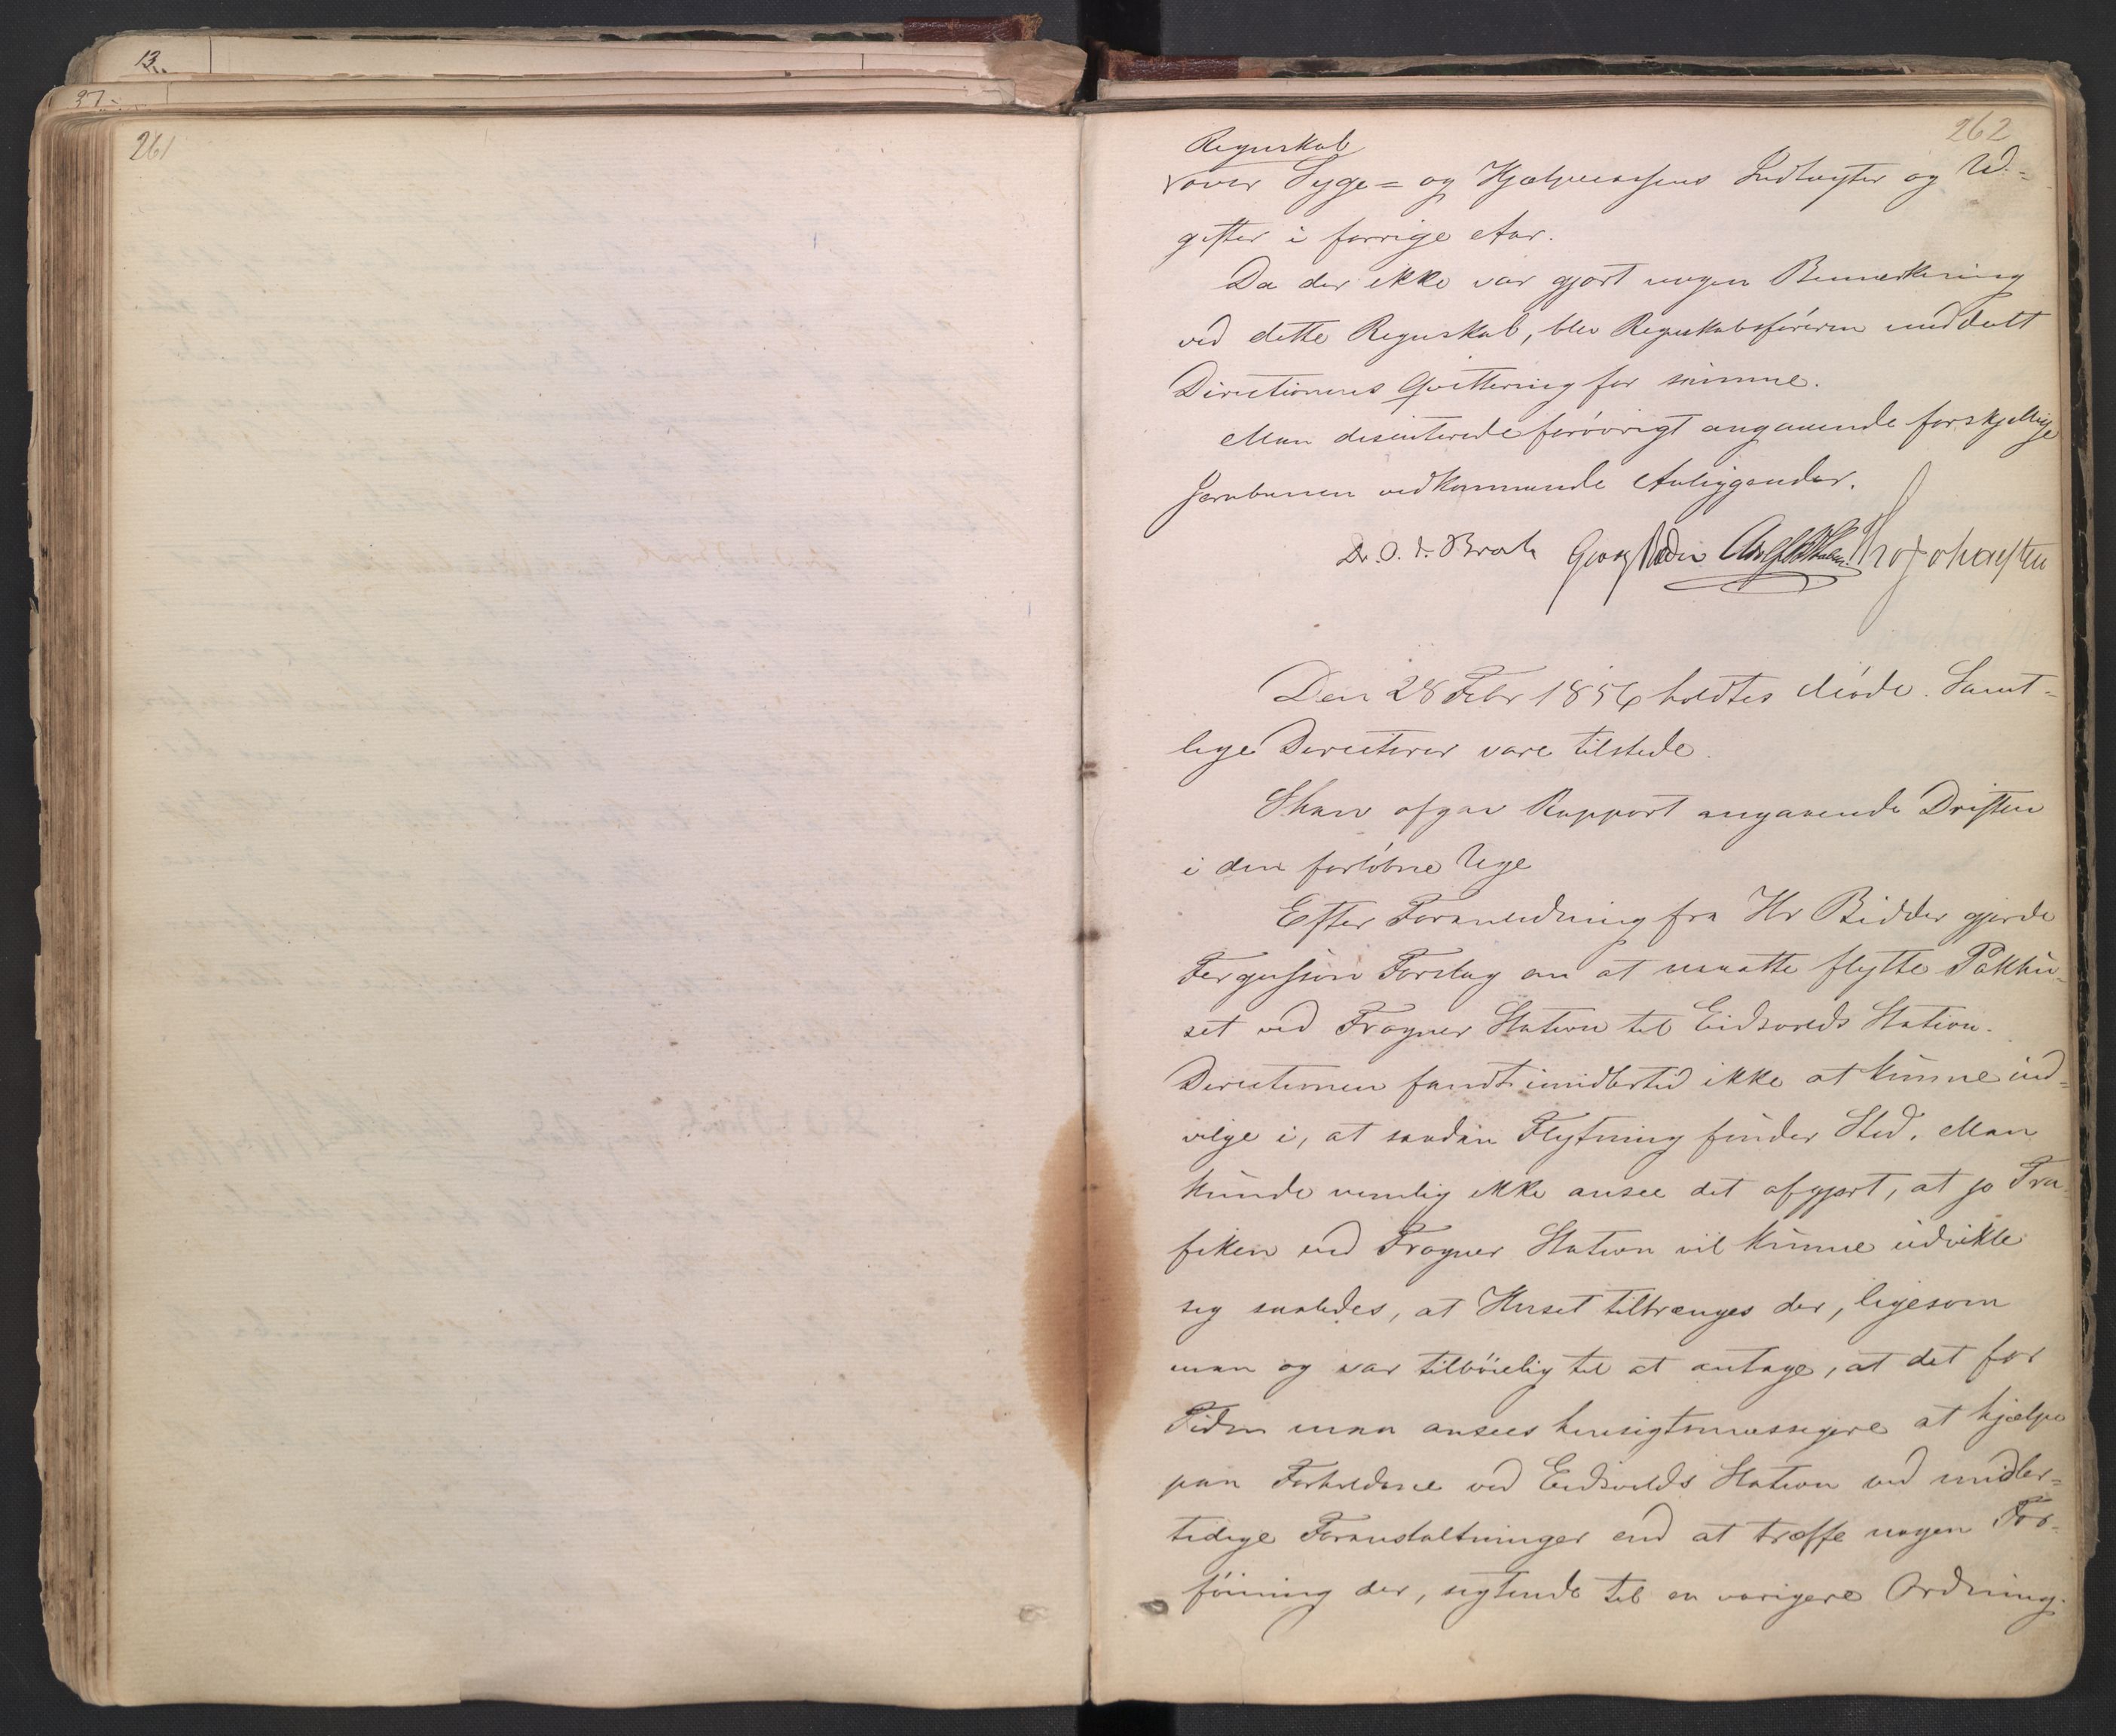 13
37
261
262
Regnskab
over Syge= og Hjælpecassens Indtægter og Ud-
gifter i forrige Aar.
Da der ikke var gjort nogen Bemærkning
ved dette Regnskab, blev Regnskabsføreren meddelt
Directionens Qvittering for samme.
Man discuterede forøvrigt angaaende forskjellige
Jernbanen vedkommende Anliggender.
Dr. O. J. Broch Tho Johannesen
Den 28 Febr 1856 holdtes Møde. Samt-
lige Directører vare tilstede.
Than afgav Rapport angaaende Driften
i den forløbne Uge
Efter Foranledning fra Hr Bidder gjorde
Fergusson Forslag om at maatte flytte Pakhu-
set ved Frogner Station til Eidsvolds Station.
Directionen fandt imidlertid ikke at kunne ind-
vilge i, at saadan Flytning finder Sted. Man
kunde nemlig ikke ansee det afgjort, at jo Tra-
fiken ved Frogner Station vil kunne udvikle
sig saaledes, at Huset tiltrænges der, ligesom
man og var tilbøielig til at antage, at det for
Tiden maa ansees hensigtsmæssigere at hjælpe
paa Forholdene ved Eidsvolds Station ved midler-
tidige Foranstaltninger end at træffe nogen For-
føining der, sigtende til en varigere Ordning.